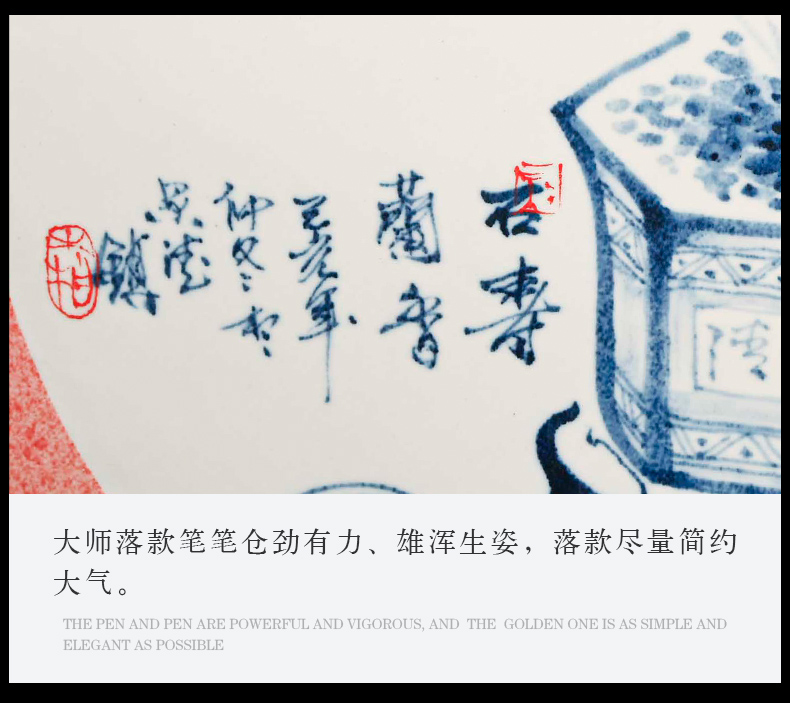 石寿
蘭香
仲冬
景德
鎮
大师落款笔笔仓劲有力、雄浑生姿，落款尽量简约
大气。
THE PEN AND PEN ARE POWERFUL AND VIGOROUS, AND THE GOLDEN ONE IS AS SIMPLE AND
ELEGANT AS POSSIBLE